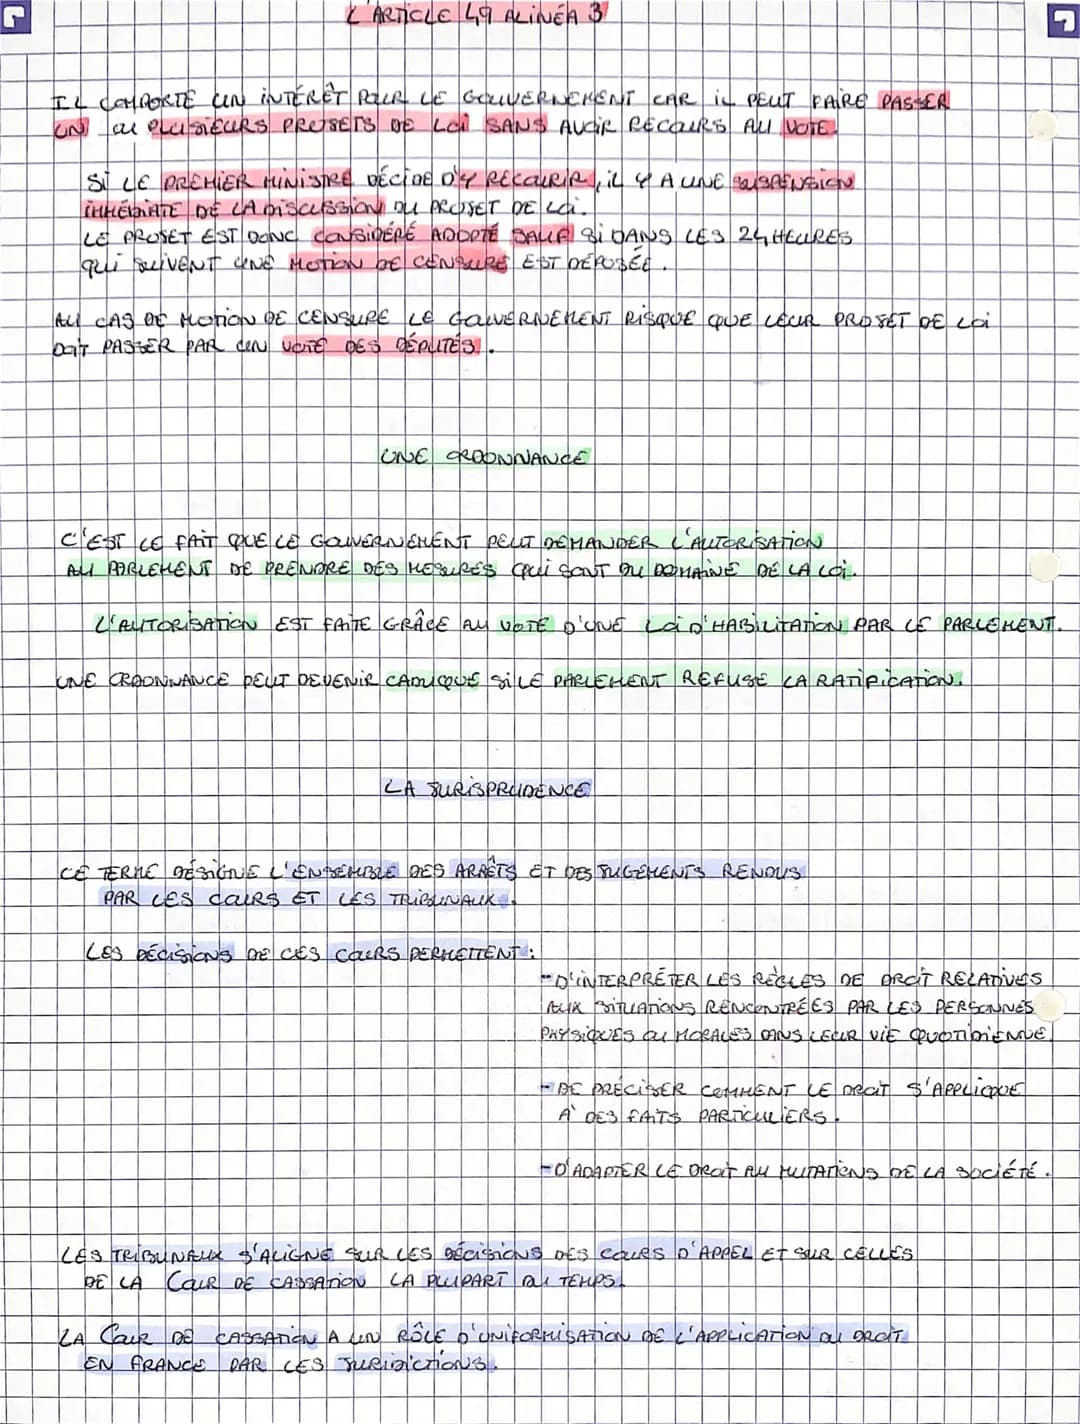 L'ARTICLE 49 ALINÉA 3
IL COMPORTE UN INTÉRÊT POUR LE GOUVERNEMENT CAR IL PEUT FAIRE PASSER
UN OU PLUSIEURS PROJETS DE LOI SANS AVOIR RECOURS AU VOTE.
SI LE PREMIER MINISTRE DÉCIDE D'Y RECOURIR, IL Y A UNE SUSPENSION
IMMÉDIATE DE LA DISCUSSION DU PROJET DE LOI.
LE PROJET EST DONC CONSIDÉRÉ ADOPTÉ SAUF SI DANS LES 24 HEURES
QUI SUIVENT UNE MOTION DE CENSURE EST DÉPOSÉE.
AU CAS DE MOTION DE CENSURE LE GOUVERNEMENT RISQUE QUE LEUR PROJET DE LOI
DOIT PASSER PAR UN VOTE DES DÉPUTÉS.
UNE ORDONNANCE
C'EST LE FAIT QUE LE GOUVERNEMENT PEUT DEMANDER L'AUTORISATION
AU PARLEMENT DE PRENDRE DES MESURES QUI SONT DU DOMAINE DE LA LOI.
L'AUTORISATION EST FAITE GRÂCE AU VOTE D'UNE LOI D'HABILITATION PAR LE PARLEMENT.
UNE ORDONNANCE PEUT DEVENIR CADUQUE SI LE PARLEMENT REFUSE LA RATIFICATION.
LA JURISPRUDENCE
CE TERME DÉSIGNE L'ENSEMBLE DES ARRÊTS ET DES JUGEMENTS RENDUS
PAR LES COURS ET LES TRIBUNAUX.
LES DÉCISIONS DE CES COURS PERMETTENT :
- D'INTERPRÉTER LES RÈGLES DE DROIT RELATIVES
AUX SITUATIONS RENCONTRÉES PAR LES PERSONNES
PHYSIQUES OU MORALES DANS LEUR VIE QUOTIDIENNE.
- DE PRÉCISER COMMENT LE DROIT S'APPLIQUE
À DES FAITS PARTICULIERS.
- D'ADAPTER LE DROIT AU MUTATIONS DE LA SOCIÉTÉ.
LES TRIBUNAUX S'ALIGNE SUR LES DÉCISIONS DES COURS D'APPEL ET SUR CELLES
DE LA COUR DE CASSATION LA PLUPART DU TEMPS.
LA COUR DE CASSATION A UN RÔLE D'UNIFORMISATION DE L'APPLICATION DU DROIT
EN FRANCE PAR LES JURIDICTIONS.